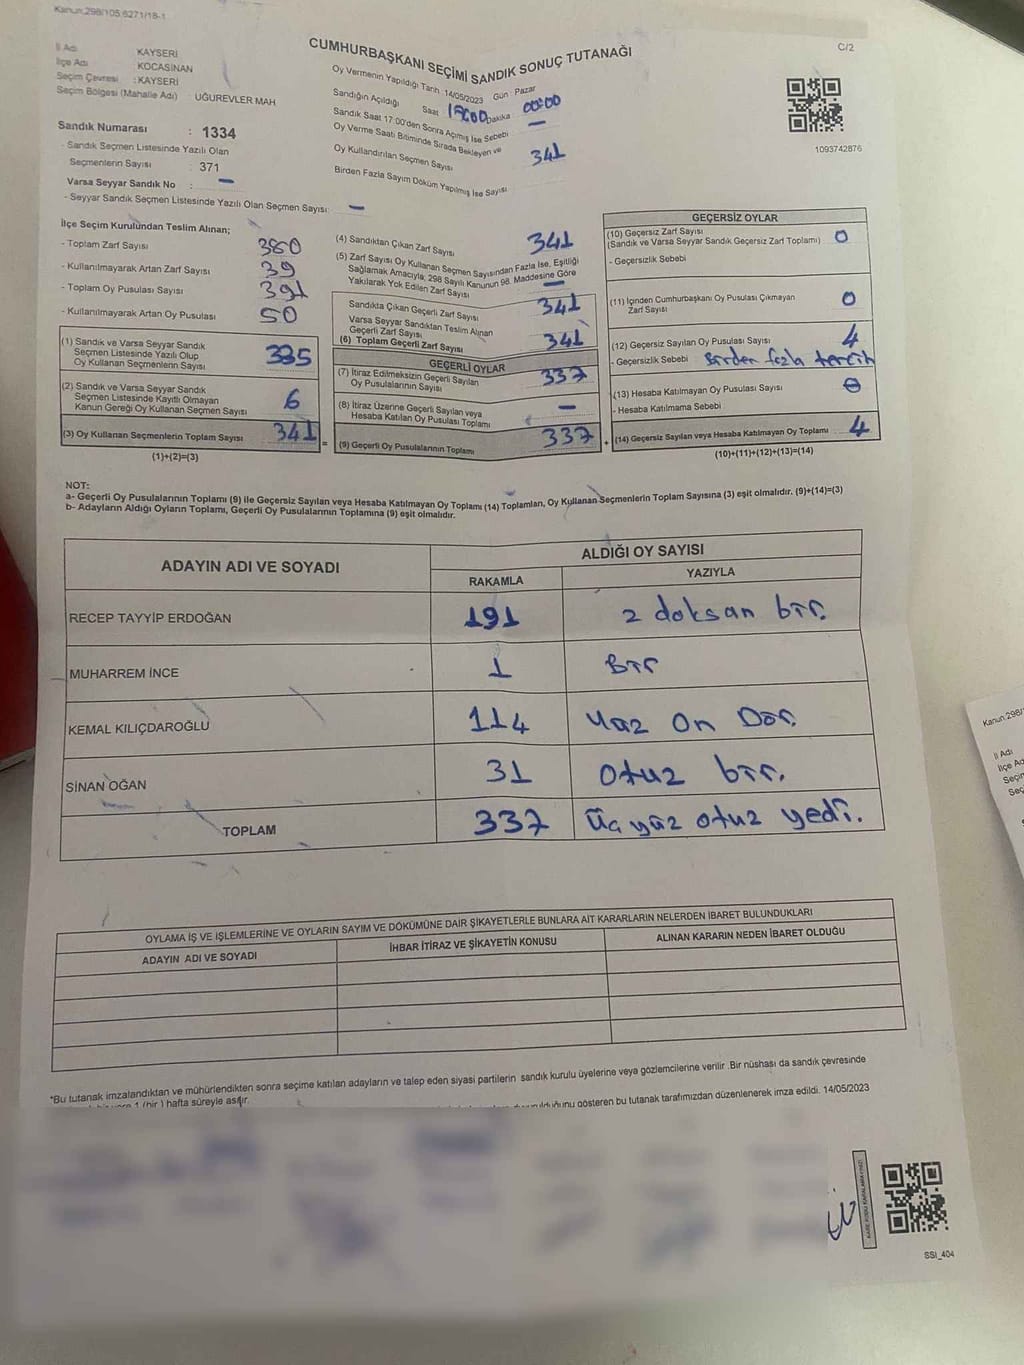 Kanun:298/105:6271/18-1
C/2
İl Adı KAYSERİ
İlçe Adı KOCASİNAN
Seçim Çevresi : KAYSERİ
Seçim Bölgesi (Mahalle Adı) UĞUREVLER MAH
CUMHURBAŞKANI SEÇİMİ SANDIK SONUÇ TUTANAĞI
Oy Vermenin Yapıldığı Tarih 14/05/2023 Gün : Pazar
Sandığın Açıldığı Saat Dakika 00:00
Sandık Saat 17:00'den Sonra Açmış İse Sebebi —
Oy Verme Saati Bitiminde Sırada Bekleyen ve
Oy Kullandırılan Seçmen Sayısı 341
Birden Fazla Sayım Döküm Yapılmış İse Sayısı
1093742876
Sandık Numarası : 1334
- Sandık Seçmen Listesinde Yazılı Olan
Seçmenlerin Sayısı : 371
Varsa Seyyar Sandık No : —
- Seyyar Sandık Seçmen Listesinde Yazılı Olan Seçmen Sayısı: —
İlçe Seçim Kurulundan Teslim Alınan;
- Toplam Zarf Sayısı 380
- Kullanılmayarak Artan Zarf Sayısı 39
- Toplam Oy Pusulası Sayısı 391
- Kullanılmayarak Artan Oy Pusulası 50
(1) Sandık ve Varsa Seyyar Sandık
Seçmen Listesinde Yazılı Olup
Oy Kullanan Seçmenlerin Sayısı 335
(2) Sandık ve Varsa Seyyar Sandık
Seçmen Listesinde Kayıtlı Olmayan
Kanun Gereği Oy Kullanan Seçmen Sayısı 6
(3) Oy Kullanan Seçmenlerin Toplam Sayısı 341 =
(1)+(2)=(3)
(4) Sandıktan Çıkan Zarf Sayısı 341
(5) Zarf Sayısı Oy Kullanan Seçmen Sayısından Fazla İse, Eşitliği
Sağlamak Amacıyla; 298 Sayılı Kanunun 98. Maddesine Göre
Yakılarak Yok Edilen Zarf Sayısı —
Sandıkta Çıkan Geçerli Zarf Sayısı 341
Varsa Seyyar Sandıktan Teslim Alınan
Geçerli Zarf Sayısı
(6) Toplam Geçerli Zarf Sayısı 341
GEÇERLİ OYLAR
(7) İtiraz Edilmeksizin Geçerli Sayılan
Oy Pusulalarının Sayısı 337
(8) İtiraz Üzerine Geçerli Sayılan veya
Hesaba Katılan Oy Pusulası Toplamı —
(9) Geçerli Oy Pusulalarının Toplamı 337 +
GEÇERSİZ OYLAR
(10) Geçersiz Zarf Sayısı
(Sandık ve Varsa Seyyar Sandık Geçersiz Zarf Toplamı) 0
- Geçersizlik Sebebi
(11) İçinden Cumhurbaşkanı Oy Pusulası Çıkmayan
Zarf Sayısı 0
(12) Geçersiz Sayılan Oy Pusulası Sayısı 4
- Geçersizlik Sebebi Birden fazla tercih
(13) Hesaba Katılmayan Oy Pusulası Sayısı 0
- Hesaba Katılmama Sebebi
(14) Geçersiz Sayılan veya Hesaba Katılmayan Oy Toplamı 4
(10)+(11)+(12)+(13)=(14)
NOT:
a- Geçerli Oy Pusulalarının Toplamı (9) ile Geçersiz Sayılan veya Hesaba Katılmayan Oy Toplamı (14) Toplamları, Oy Kullanan Seçmenlerin Toplam Sayısına (3) eşit olmalıdır. (9)+(14)=(3)
b- Adayların Aldığı Oyların Toplamı, Geçerli Oy Pusulalarının Toplamına (9) eşit olmalıdır.
ADAYIN ADI VE SOYADI ALDIĞI OY SAYISI
RAKAMLA YAZIYLA
RECEP TAYYİP ERDOĞAN 191 2 doksan bir.
MUHARREM İNCE 1 Bir
KEMAL KILIÇDAROĞLU 114 Yüz On Dör.
SİNAN OĞAN 31 Otuz bir.
TOPLAM 337 Üç yüz otuz yedi.
OYLAMA İŞ VE İŞLEMLERİNE VE OYLARIN SAYIM VE DÖKÜMÜNE DAİR ŞİKAYETLERLE BUNLARA AİT KARARLARIN NELERDEN İBARET BULUNDUKLARI
ADAYIN ADI VE SOYADI İHBAR İTİRAZ VE ŞİKAYETİN KONUSU ALINAN KARARIN NEDEN İBARET OLDUĞU
*Bu tutanak imzalandıktan ve mühürlendikten sonra seçime katılan adayların ve talep eden siyasi partilerin sandık kurulu üyelerine veya gözlemcilerine verilir. Bir nüshası da sandık çevresinde
1 (bir) hafta süreyle asılır.
gösteren bu tutanak tarafımızdan düzenlenerek imza edildi. 14/05/2023
SSI_404
Kanun:298/
İl Adı
İlçe Ad
Seçim
Seç